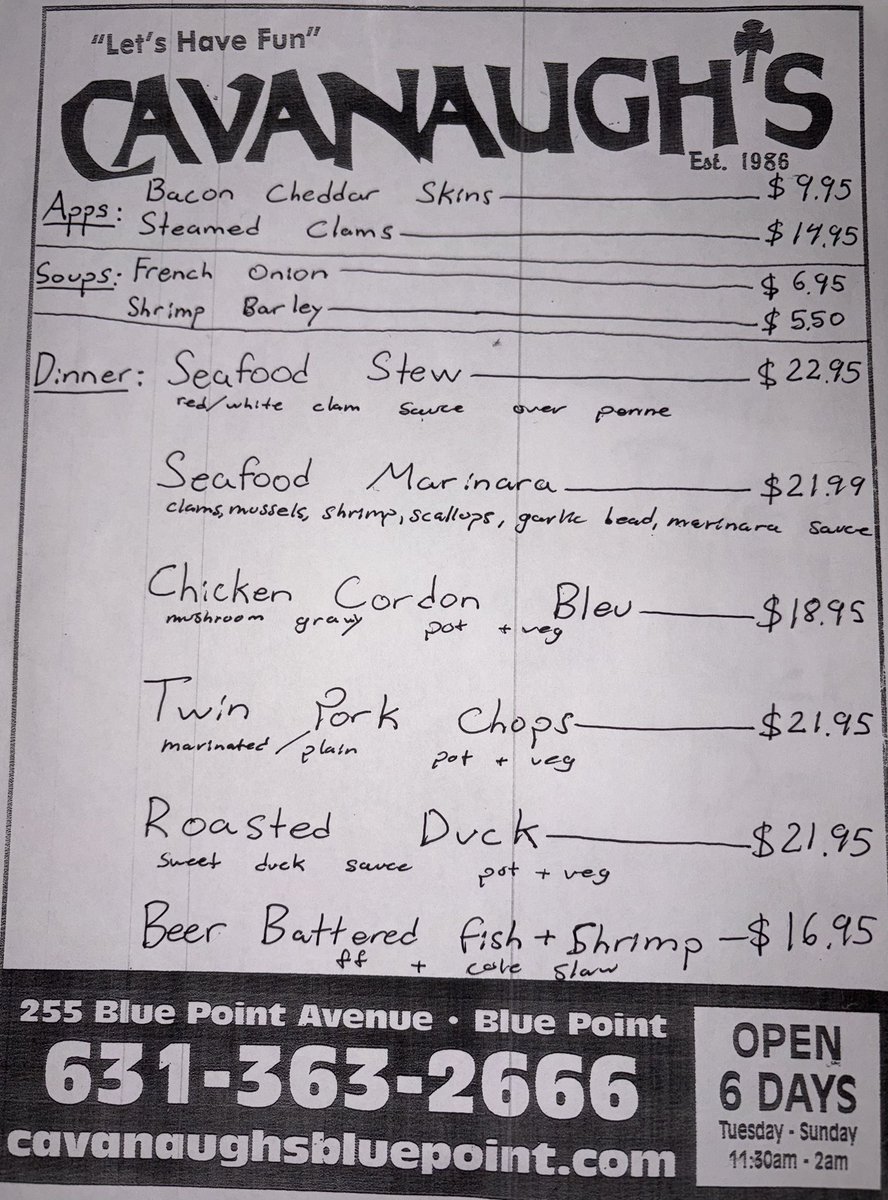 "Let's Have Fun"
CAVANAUGH'S
Est. 1986
Apps: Bacon Cheddar Skins $9.95
Steamed Clams $14.95
Soups: French Onion $6.95
Shrimp Barley $5.50
Dinner: Seafood Stew $22.95
red/white clam sauce over penne
Seafood Marinara $21.99
clams, mussels, shrimp, scallops, garlic bead, marinara sauce
Chicken Cordon Bleu $18.95
mushroom gravy pot + veg
Twin Pork Chops $21.95
marinated/plain pot + veg
Roasted Duck $21.95
sweet duck sauce pot + veg
Beer Battered fish + Shrimp $16.95
ff + cole slaw
255 Blue Point Avenue • Blue Point
631-363-2666
cavanaughsbluepoint.com
OPEN
6 DAYS
Tuesday - Sunday
11:30am - 2am